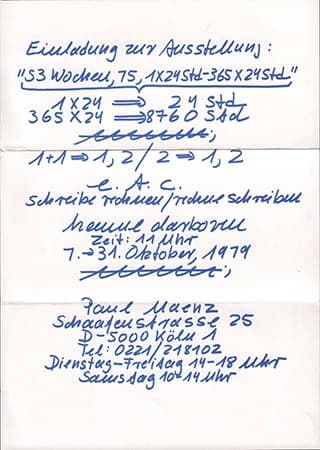 Einladung zur Ausstellung:
"53 Wochen, 75, 1x24Std-365x24Std"
1x24 ⟹ 24 Std
365x24 ⟹ 8760 Std
1+1 ⇒ 1, 2 / 2 ⇒ 1, 2
e. A. C.
schreibe rechnen/rechne schreiben
hanne darboven
Zeit: 11 Uhr
7.→31. Oktober, 1979
Paul Maenz
Schaafenstrasse 25
D-5000 Köln 1
Tel: 0221/218102
Dienstag-Freitag 14-18 Uhr
Samstag 10-14 Uhr